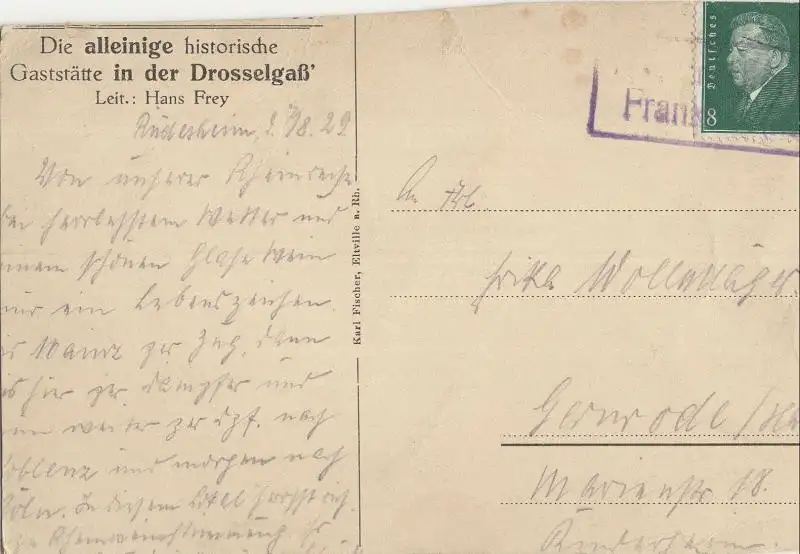 Die alleinige historische
Gaststätte in der Drosselgaß'
Leit.: Hans Frey
Rüdesheim, 2./8. 29.
Von unserer Rheinreise
bei herrlichstem Wetter und
einem schönen Glase Wein
nur ein Lebenszeichen.
Bis Mainz per Zug, dann
bis hier per Dampfer und
dann weiter per Dpf. nach
Koblenz und morgen nach
Köln. In diesem Lokal herrscht
Karl Fischer, Eltville a. Rh.
Deutsches
8
Fran
An Frl.
Erika
Gernrode / Ha
Marienstr. 18.
Kinderheim.